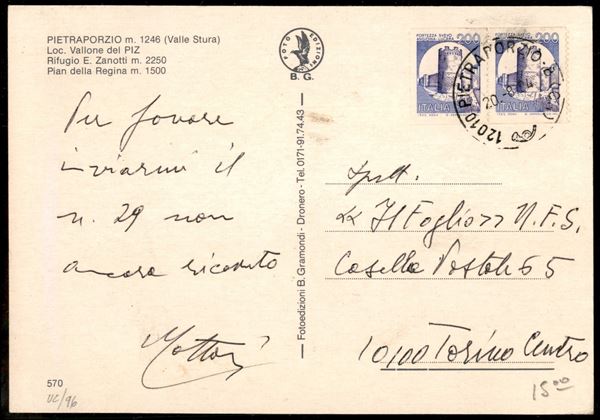 PIETRAPORZIO m. 1246 (Valle Stura)
Loc. Vallone del PIZ
Rifugio E. Zanotti m. 2250
Pian della Regina m. 1500
FOTO EDIZIONI
B. G.
FORTEZZA SVEVA
AUGUSTA LUCERA
200
ITALIA
200
ITALIA
12010 PIETRAPORZIO
Per favore
inviarmi il
n. 29 non
ancora ricevuto
Fotoedizioni B. Gramondi - Dronero - Tel. 0171-91.74.43
Spett.
"Il Foglio" U.F.S.
Casella Postale 65
10100 Torino Centro
570
UC/96
15.00